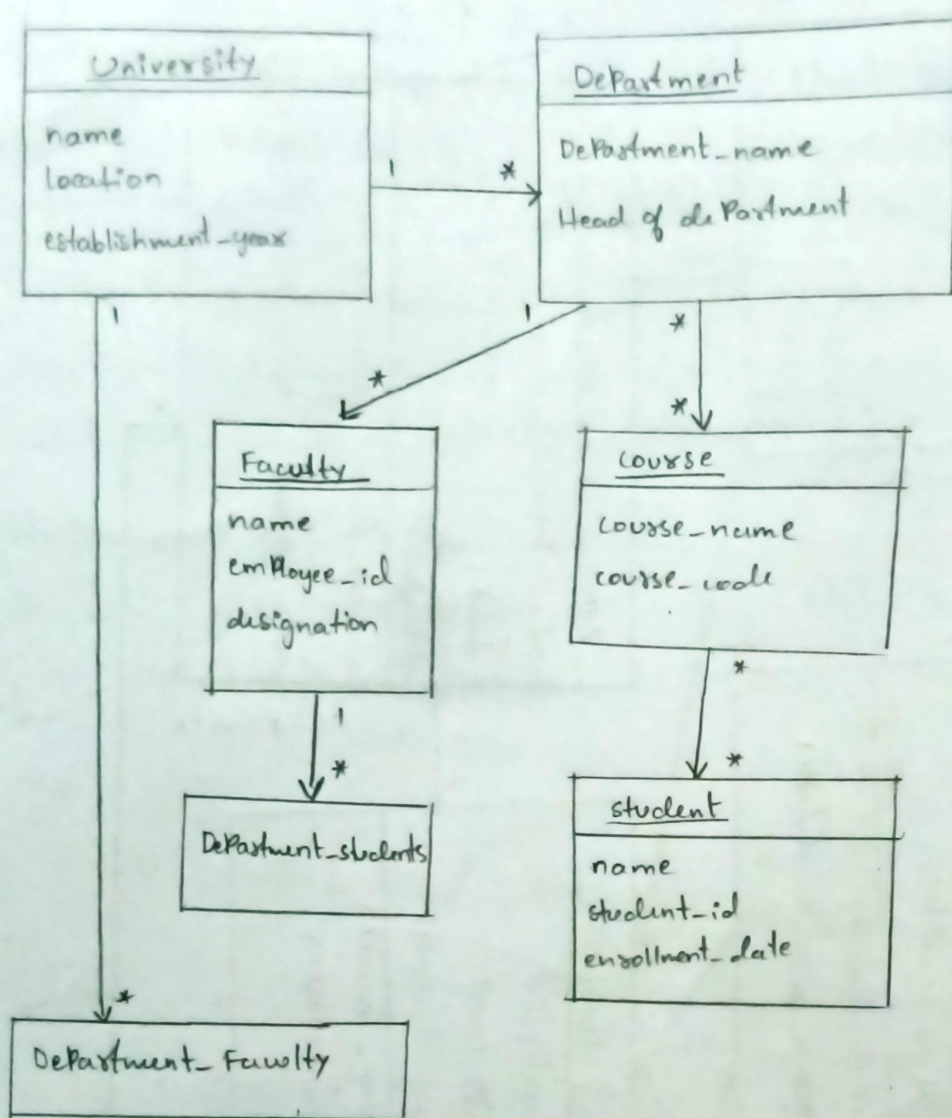 University
name
location
establishment_year
1
*
Department
Department_name
Head of department
1
*
1
*
*
*
Faculty
name
employee_id
designation
Course
course_name
course_code
1
*
*
*
Department_students
student
name
student_id
enrollment_date
1
*
Department_Faculty